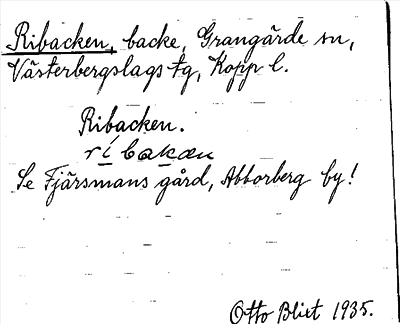 Ribacken, backe, Grangärde sn,
Västerbergslags tg, Kopp l.
Ribacken.
rí bakæn
Se Fjärsmans gård, Abborberg by!
Otto Blixt 1935.